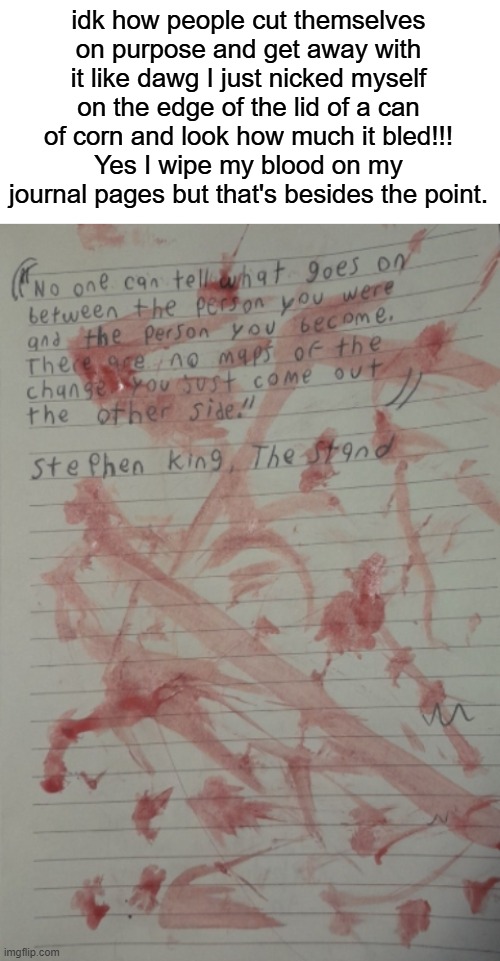 idk how people cut themselves
on purpose and get away with
it like dawg I just nicked myself
on the edge of the lid of a can
of corn and look how much it bled!!!
Yes I wipe my blood on my
journal pages but that's besides the point.
"No one can tell what goes on
between the person you were
and the person you become.
There are no maps of the
change you just come out
the other side."
Stephen King, The Stand
imgflip.com